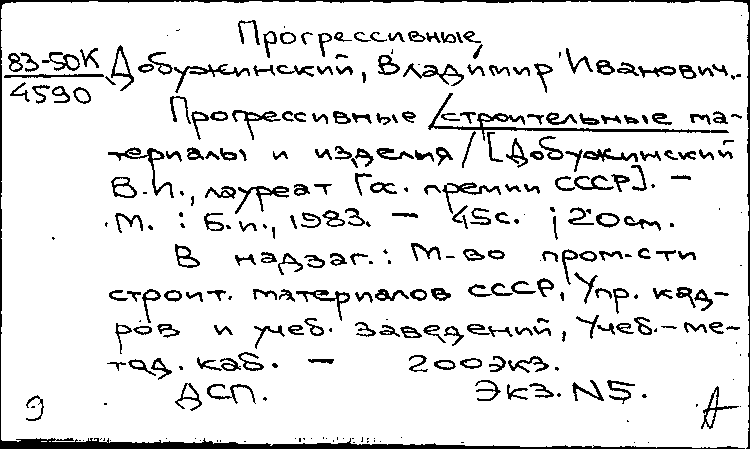 Прогрессивные
83-50К Добужинский, Владимир Иванович.
4590
Прогрессивные /строительные ма-
териалы и изделия/ [Добужинский
В.И., лауреат Гос. премии СССР]. –
М. : Б.и., 1983. – 45с. ; 20см.
В надзаг.: М-во пром-сти
строит. материалов СССР, Упр. кад-
ров и учеб. заведений, Учеб.-ме-
тод. каб. – 200экз.
ДСП. Экз. N5.
9 А